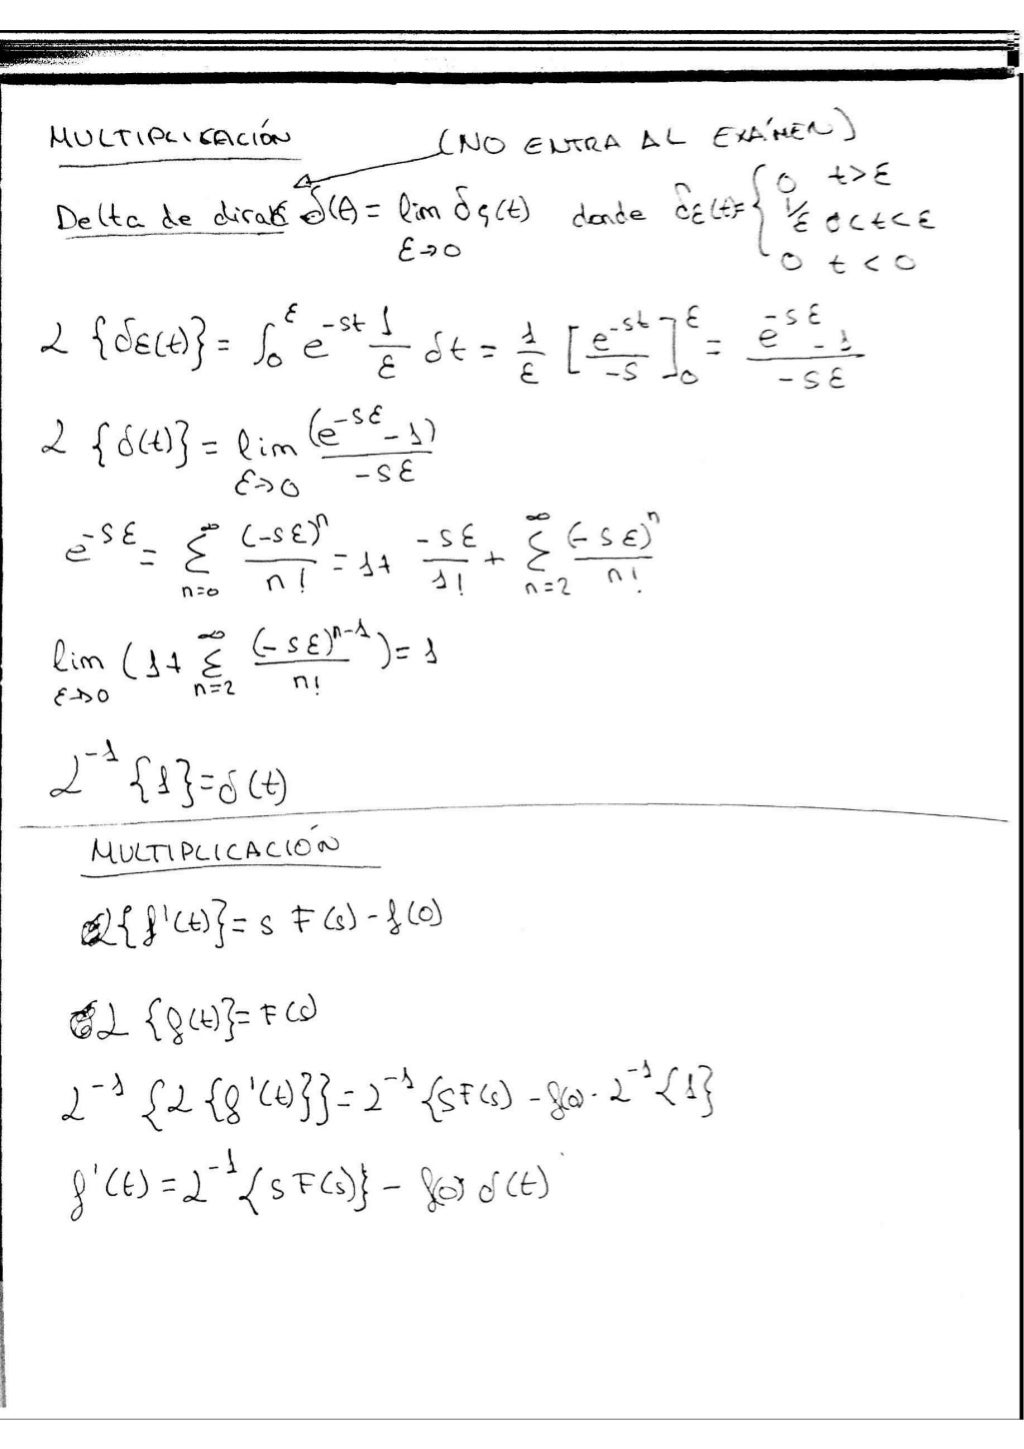 MULTIPLICACIÓN (NO ENTRA AL EXÁMEN)
Delta de dirak δ(t) = lim_{ε→0} δ_ε(t) donde δ_ε(t) = { 0 t>ε ; 1/ε 0<t<ε ; 0 t<0
ℒ {δ_ε(t)} = ∫_0^ε e^{-st} 1/ε dt = 1/ε [e^{-st}/-s]_0^ε = (e^{-sε} - 1)/(-sε)
ℒ {δ(t)} = lim_{ε→0} (e^{-sε} - 1)/(-sε)
e^{-sε} = Σ_{n=0}^∞ (-sε)^n/n! = 1 + -sε/1! + Σ_{n=2}^∞ (-sε)^n/n!
lim_{ε→0} (1 + Σ_{n=2}^∞ (-sε)^{n-1}/n!) = 1
ℒ^{-1} {1} = δ(t)
MULTIPLICACIÓN
ℒ{f'(t)} = s F(s) - f(0)
ℒ {f(t)} = F(s)
ℒ^{-1} {ℒ {f'(t)}} = ℒ^{-1} {sF(s) - f(0) · ℒ^{-1} {1}
f'(t) = ℒ^{-1} {s F(s)} - f(0) δ(t)